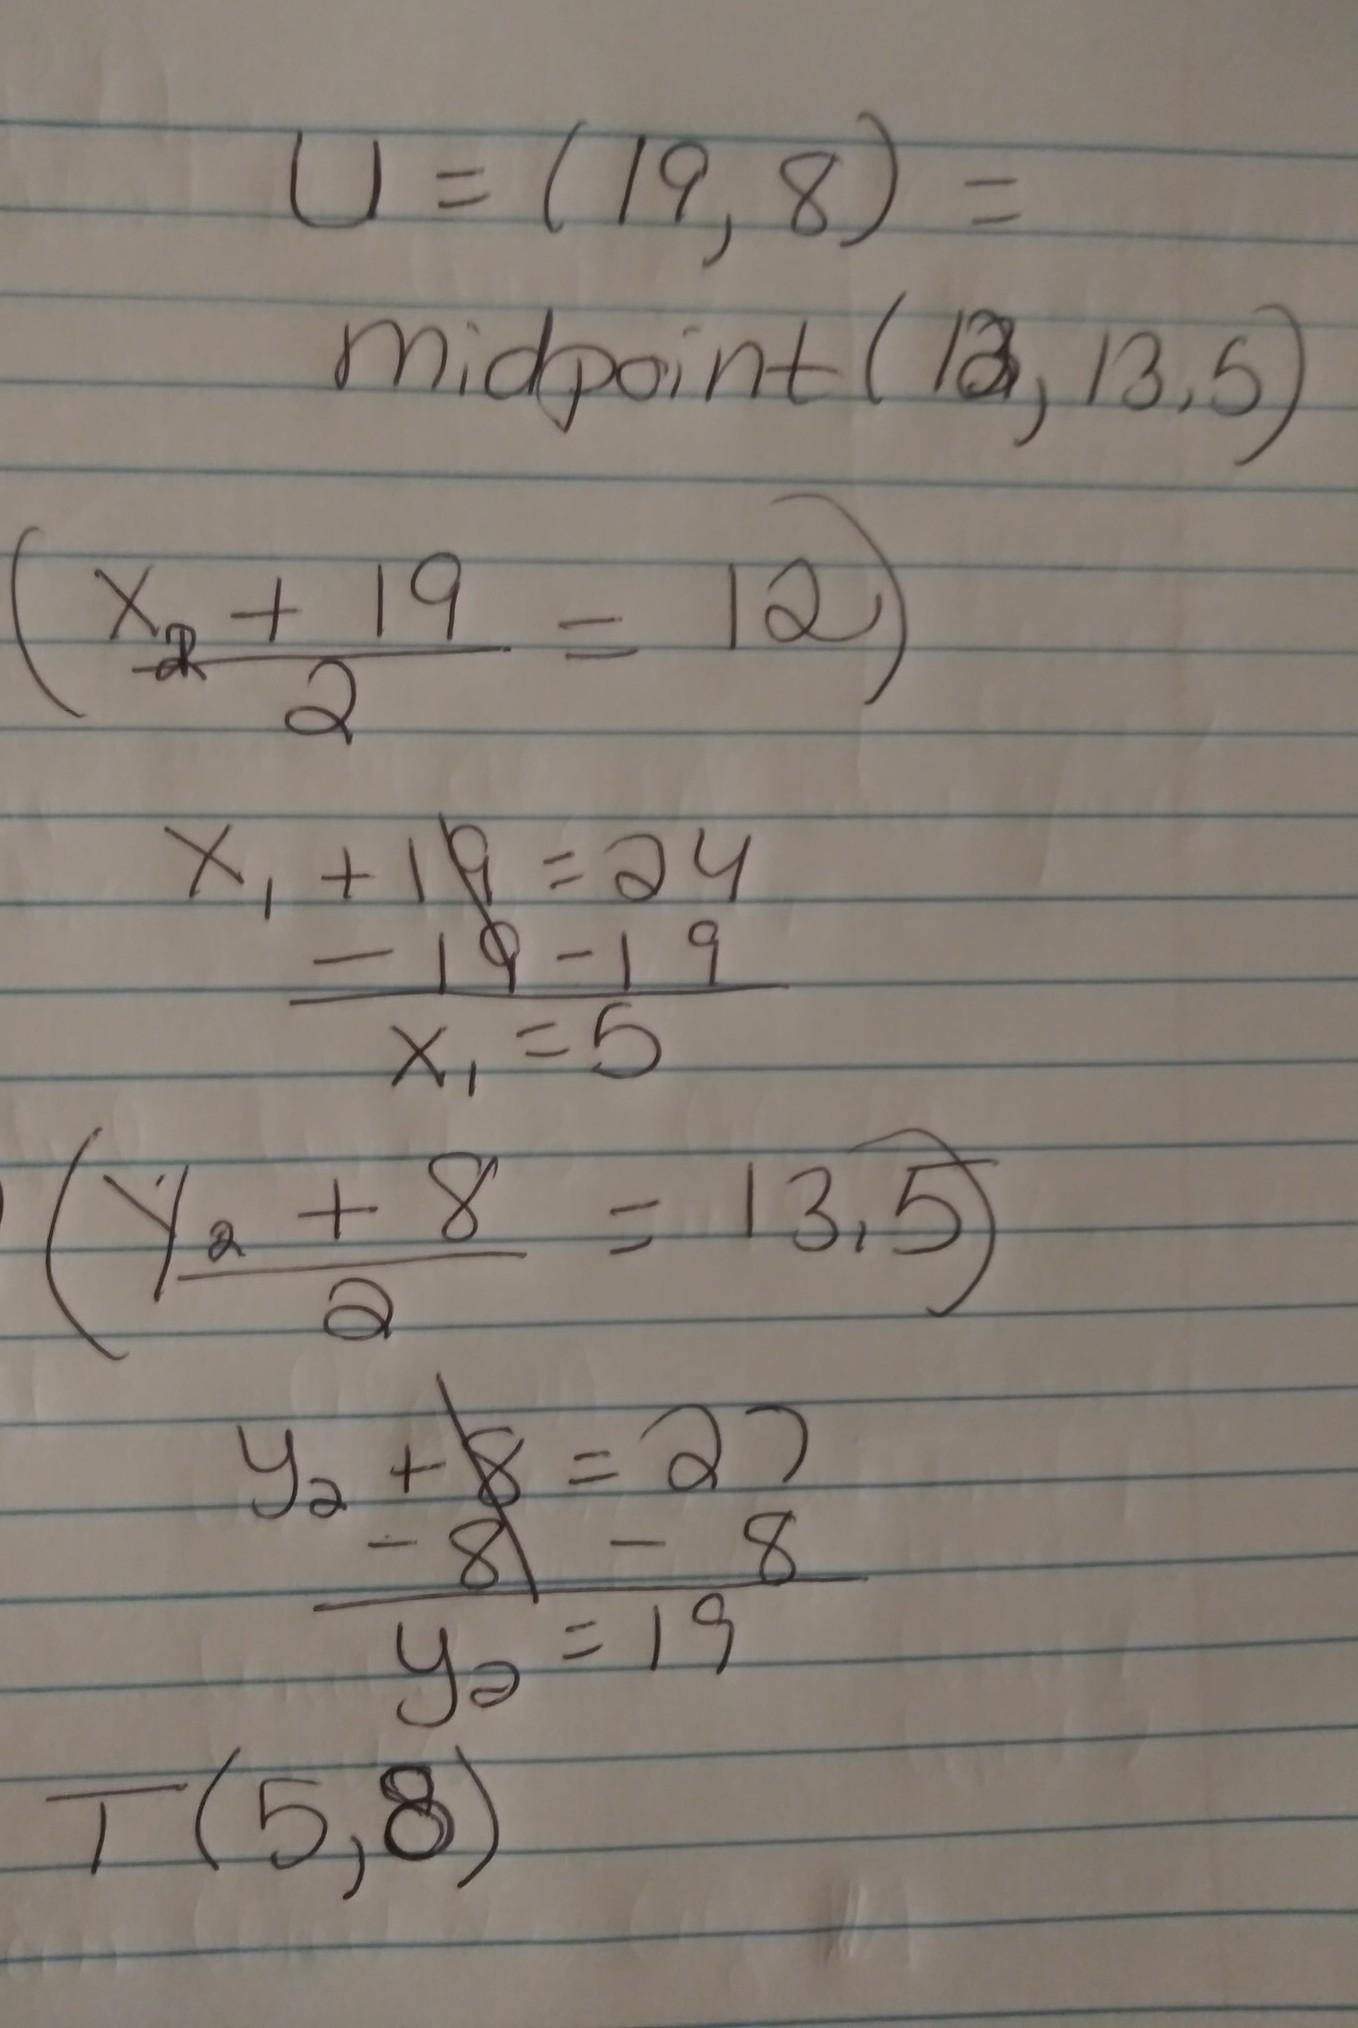 U = (19, 8) =
midpoint (12, 13.5)
(x₂ + 19 = 12)
2
x₁ + 19 = 24
- 19 - 19
x₁ = 5
(y₂ + 8 = 13.5)
2
y₂ + 8 = 27
- 8 - 8
y₂ = 19
T (5, 8)